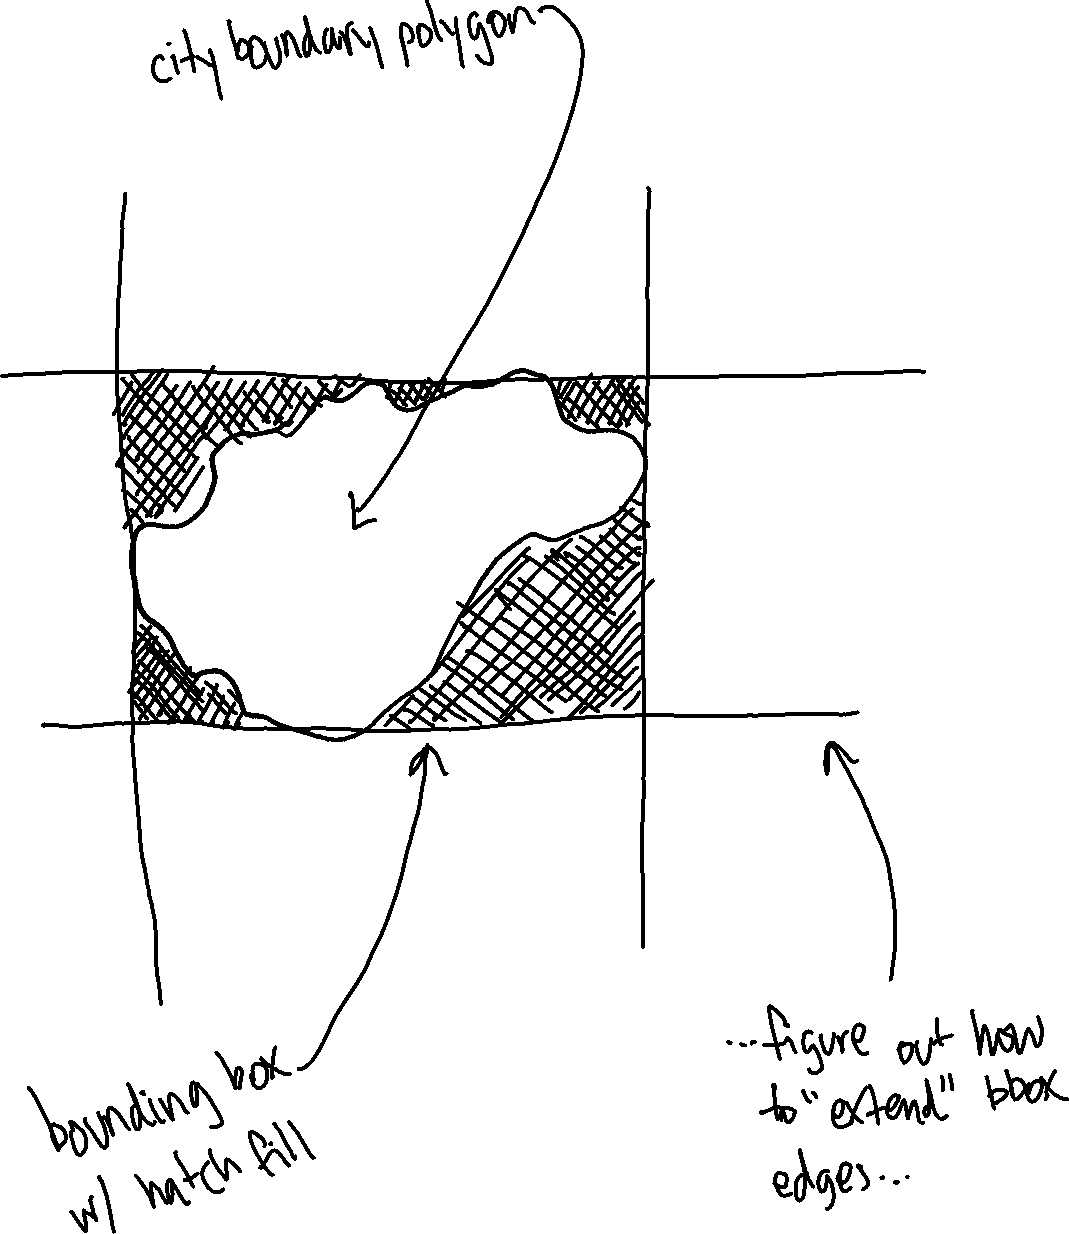 city boundary polygon
bounding box
w/ hatch fill
...figure out how
to "extend" bbox
edges...